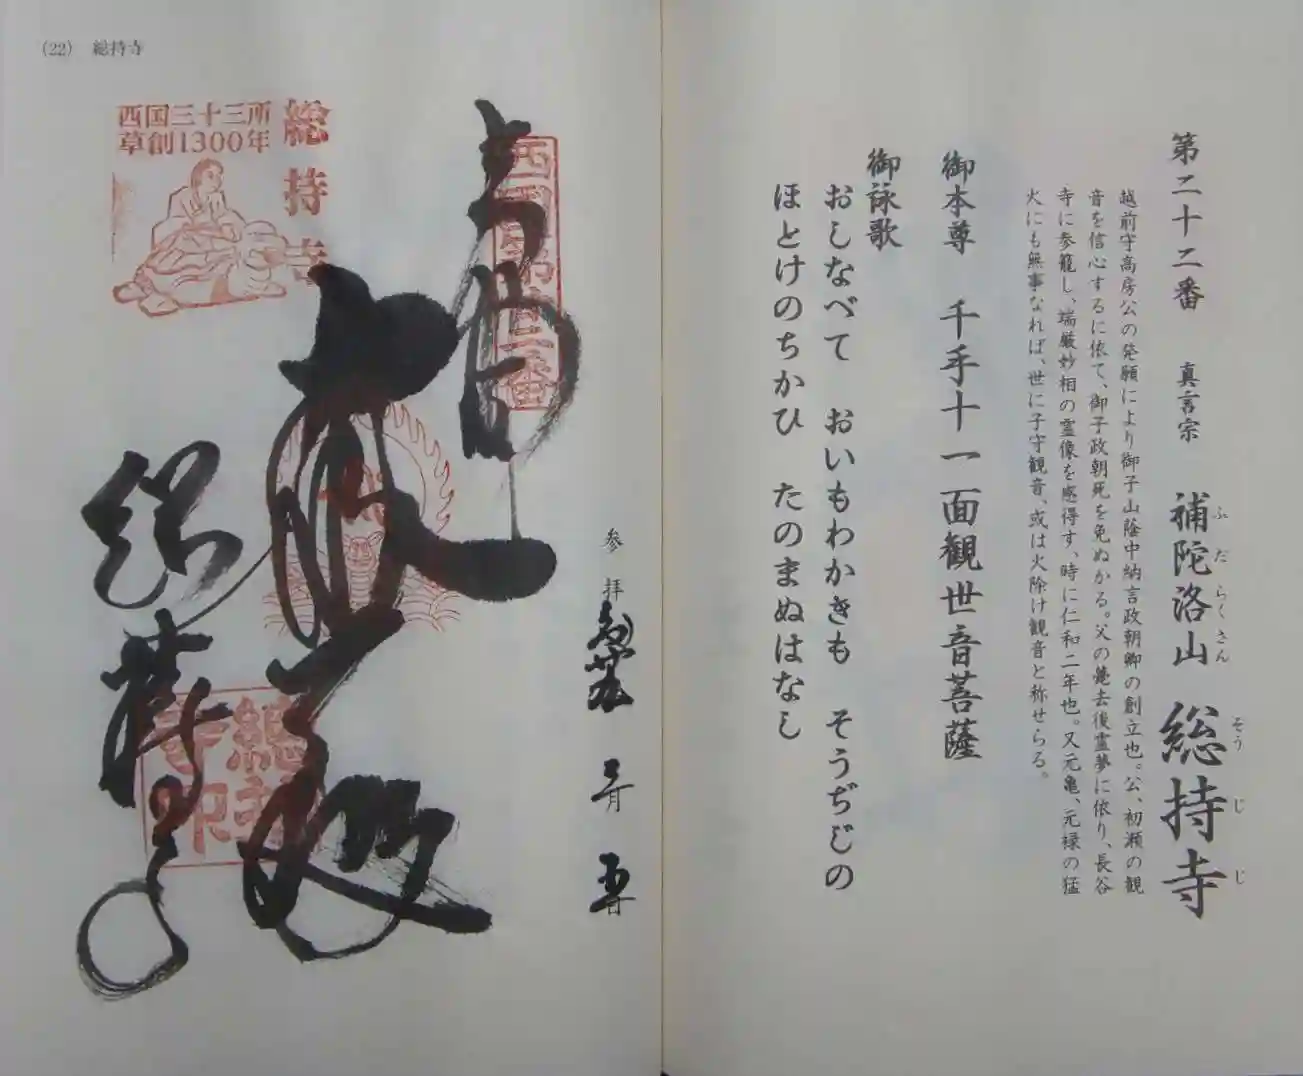 第二十二番 真言宗 補陀洛山 総持寺
ふだらくさん そうじじ
越前守高房公の発願により御子山蔭中納言政朝卿の創立也。公、初瀬の観
音を信心するに依て、御子政朝死を免ぬかる。父の薨去後霊夢に依り、長谷
寺に参籠し、端厳妙相の霊像を感得す、時に仁和二年也。又元亀、元禄の猛
火にも無事なれば、世に子守観音、或は火除け観音と称せらる。
御本尊 千手十一面観世音菩薩
御詠歌
おしなべて おいもわかきも そうぢじの
ほとけのちかひ たのまぬはなし
(22) 総持寺
西国三十三所
草創1300年
総持寺
奉拝
西国第廿二番
参拝
月 日
総持寺